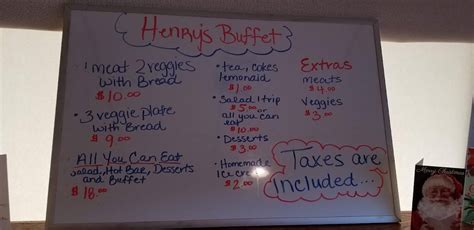 Henry's Buffet
• 1 meat 2 veggies
with Bread
$10.00
• 3 veggie plate
with Bread
$9.00
• All You Can Eat
Salad, Hot Bar, Desserts
and Buffet
$18.00
• tea, cokes
lemonaid
$1.00
• Salad 1 trip
$5.00 or
all you can
eat
$10.00
• Desserts
$3.00
• Homemade
Ice cream
$2.00
Extras
meats
$4.00
Veggies
$3.00
Taxes are
included...
Merry Christmas